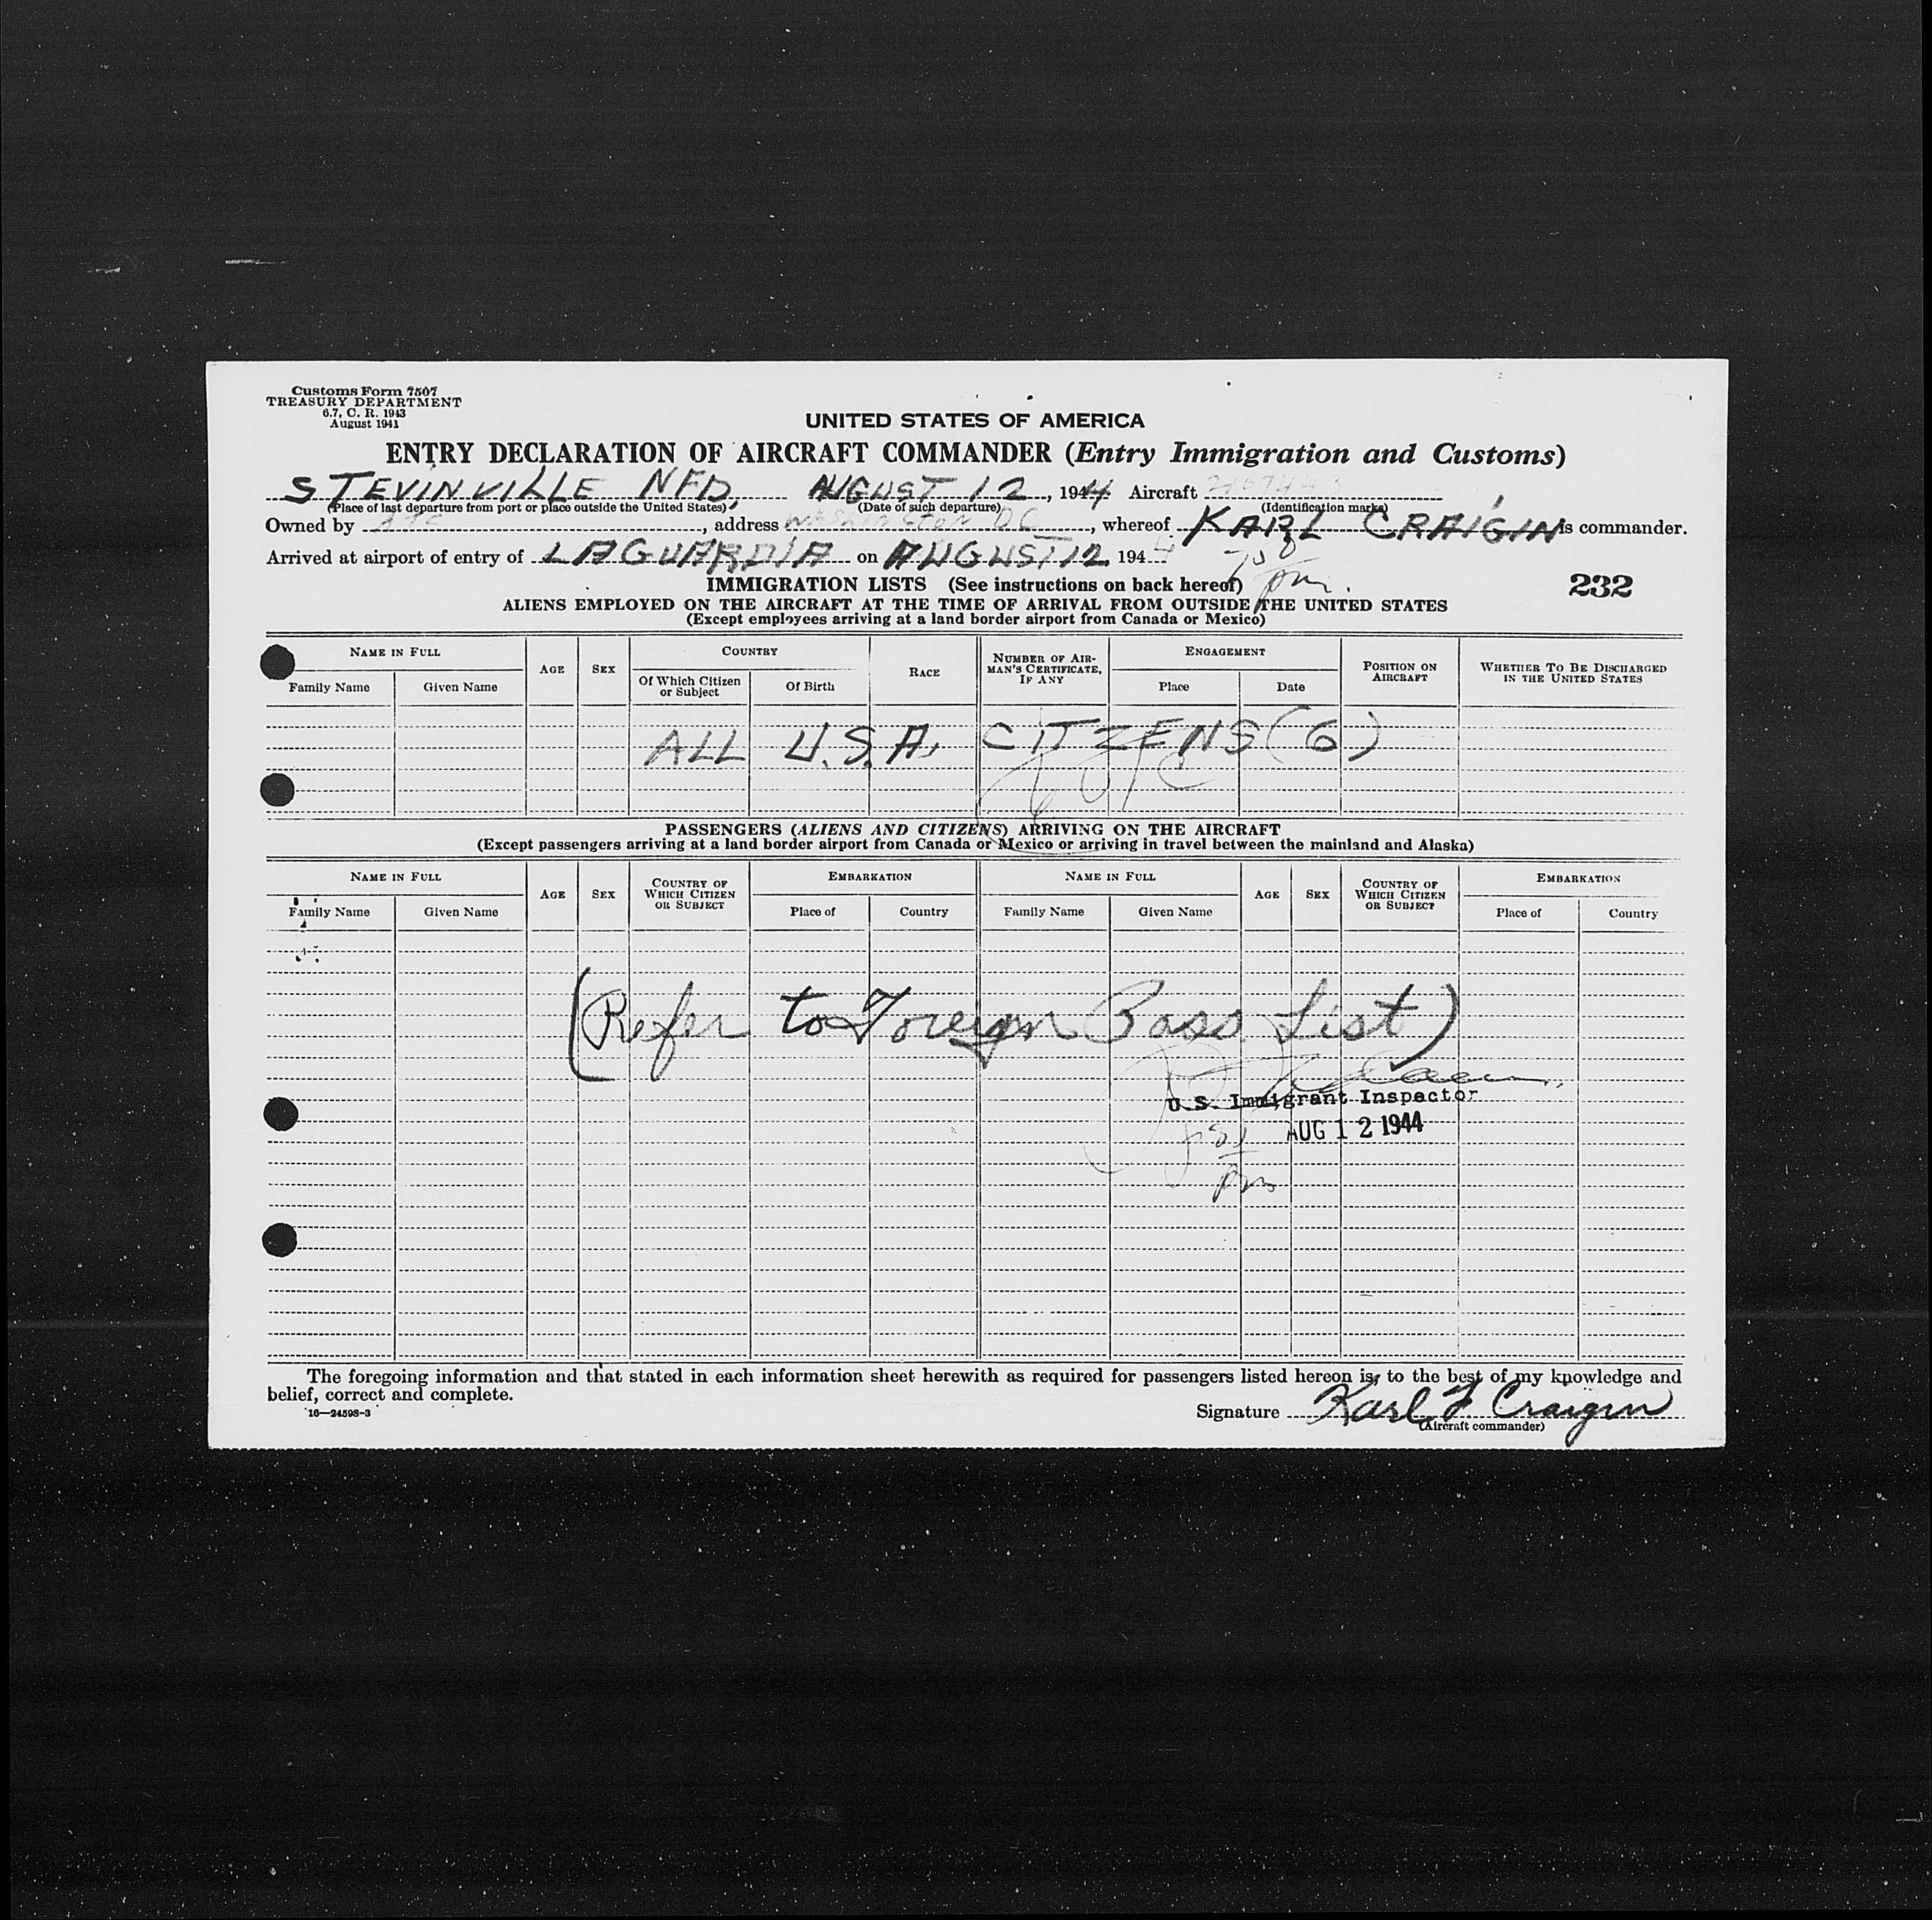 Customs Form 7507
TREASURY DEPARTMENT
6.7, C. R. 1943
August 1941
UNITED STATES OF AMERICA
ENTRY DECLARATION OF AIRCRAFT COMMANDER (Entry Immigration and Customs)
STEVINVILLE NFD, AUGUST 12, 1944 Aircraft
(Place of last departure from port or place outside the United States) (Date of such departure) (Identification marks)
Owned by ATC, address WASHINGTON DC, whereof KARL CRAIGIN is commander.
Arrived at airport of entry of LAGUARDIA on AUGUST 12, 1944
pm.
IMMIGRATION LISTS (See instructions on back hereof) 232
ALIENS EMPLOYED ON THE AIRCRAFT AT THE TIME OF ARRIVAL FROM OUTSIDE THE UNITED STATES
(Except employees arriving at a land border airport from Canada or Mexico)
NAME IN FULL AGE SEX COUNTRY RACE NUMBER OF AIRMAN'S CERTIFICATE, IF ANY ENGAGEMENT POSITION ON AIRCRAFT WHETHER TO BE DISCHARGED IN THE UNITED STATES
Family Name Given Name Of Which Citizen or Subject Of Birth Place Date
ALL U.S.A. CITIZENS (6)
PASSENGERS (ALIENS AND CITIZENS) ARRIVING ON THE AIRCRAFT
(Except passengers arriving at a land border airport from Canada or Mexico or arriving in travel between the mainland and Alaska)
NAME IN FULL AGE SEX COUNTRY OF WHICH CITIZEN OR SUBJECT EMBARKATION NAME IN FULL AGE SEX COUNTRY OF WHICH CITIZEN OR SUBJECT EMBARKATION
Family Name Given Name Place of Country Family Name Given Name Place of Country
(Refer to Foreign Pass List)
U.S. Immigrant Inspector
AUG 12 1944
pm
The foregoing information and that stated in each information sheet herewith as required for passengers listed hereon is, to the best of my knowledge and
belief, correct and complete.
16—24598-3
Signature Karl F Craigin
(Aircraft commander)